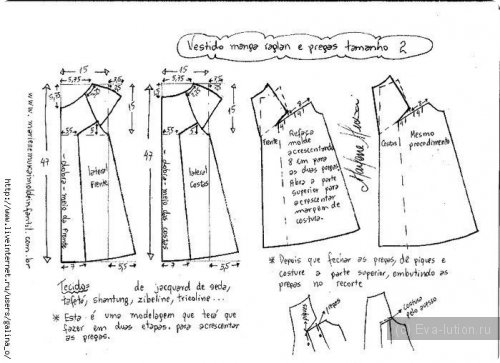 Vestido manga raglan e pregas tamanho 2
15
5,75
15
47
5,5
dobra - meio da frente
lateral frente
7
5,5
15
5,75
15
47
5,5
dobra - meio das costas
lateral costas
7
5,5
Frente
Refaça
molde
acrescentando
8 cm para
as duas pregas
Abra a parte
superior para
acrescentar
margem de
costura.
Costas
Mesmo
procedimento
Tecidos
de jacquard de seda,
tafetá, shantung, zibeline, tricoline...
* Esta é uma modelagem que terá que
fazer em duas etapas. para acrescentar
as pregas.
* Depois que fechar as pregas, dê piques e
costure a parte superior, embutindo as
pregas no recorte
piques
pregas
costura
pelo avesso
http://www.liveinternet.ru/users/galina_o/
(c) Eva-lution.ru